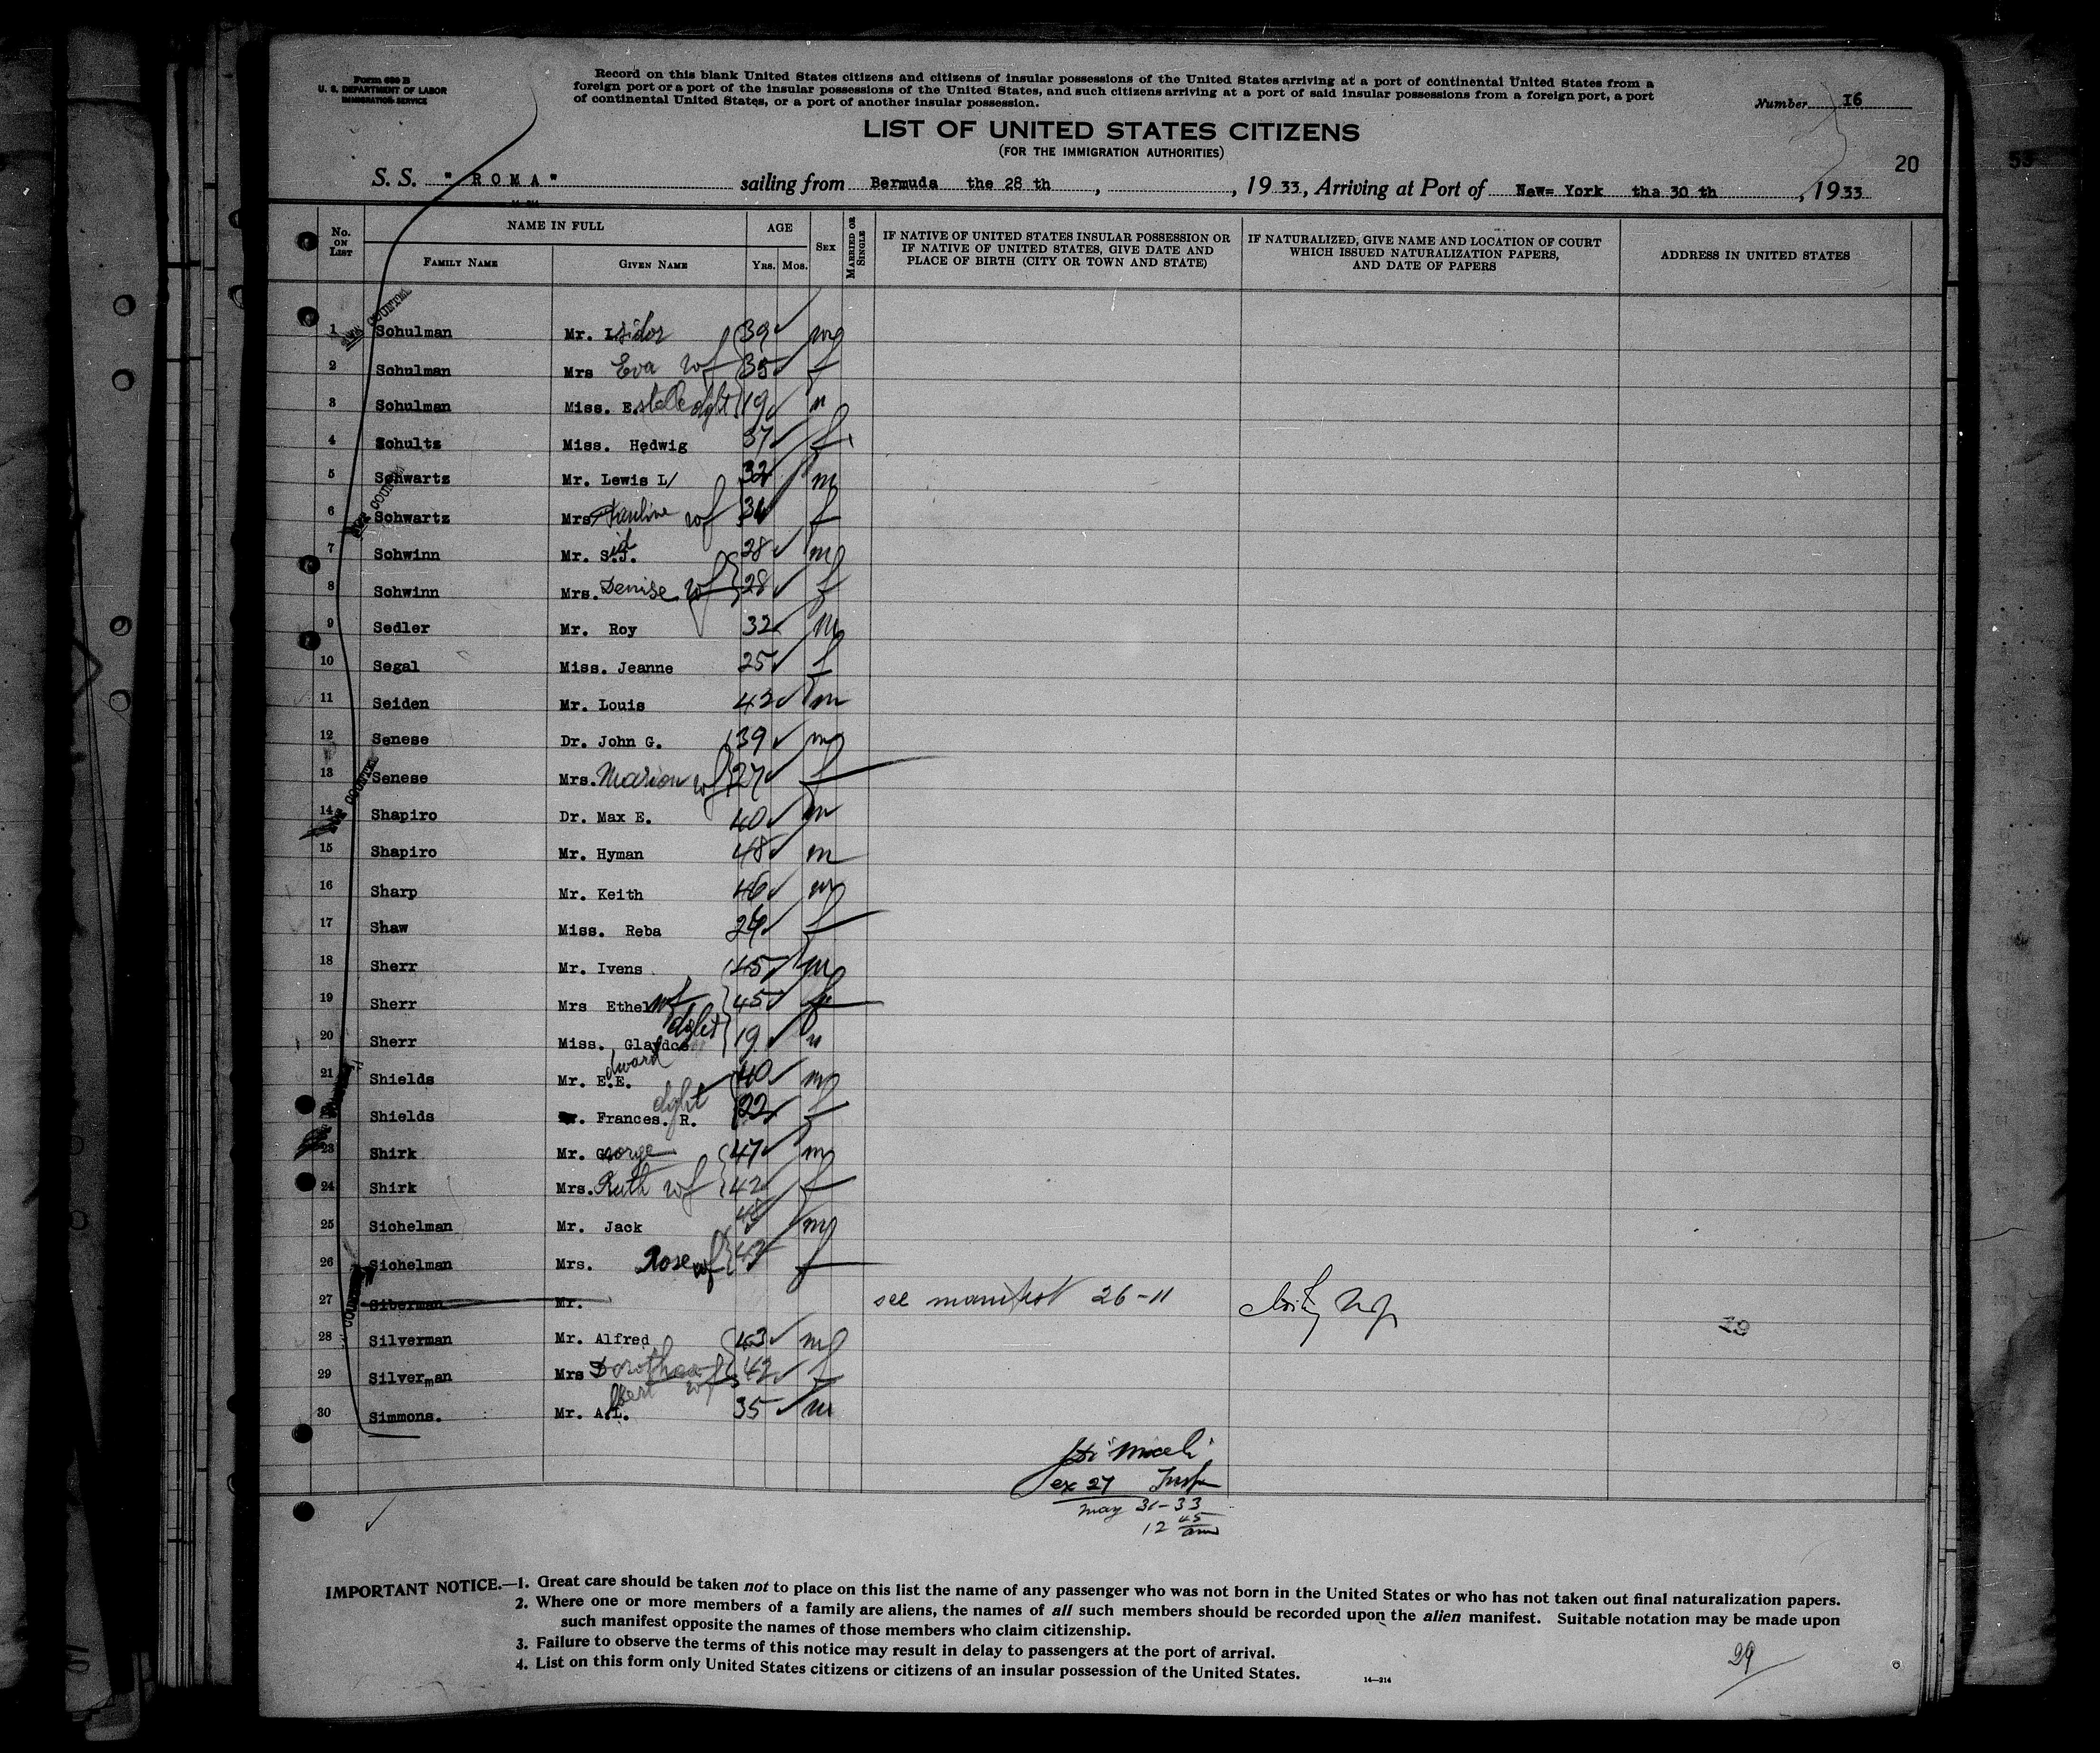 Form 630 B
U. S. DEPARTMENT OF LABOR
IMMIGRATION SERVICE
Record on this blank United States citizens and citizens of insular possessions of the United States arriving at a port of continental United States from a
foreign port or a port of the insular possessions of the United States, and such citizens arriving at a port of said insular possessions from a foreign port, a port
of continental United States, or a port of another insular possession.
Number I6
LIST OF UNITED STATES CITIZENS
(FOR THE IMMIGRATION AUTHORITIES)
20
S. S. "ROMA" sailing from Bermuda the 28 th, , 1933, Arriving at Port of New= York tha 30 th, 1933
No. ON LIST
NAME IN FULL
FAMILY NAME
GIVEN NAME
AGE
YRS. MOS.
SEX
MARRIED OR SINGLE
IF NATIVE OF UNITED STATES INSULAR POSSESSION OR
IF NATIVE OF UNITED STATES, GIVE DATE AND
PLACE OF BIRTH (CITY OR TOWN AND STATE)
IF NATURALIZED, GIVE NAME AND LOCATION OF COURT
WHICH ISSUED NATURALIZATION PAPERS,
AND DATE OF PAPERS
ADDRESS IN UNITED STATES
1 Schulman Mr. Isidor 39 m
2 Schulman Mrs Eva wf 35 f
3 Schulman Miss. Estelle dght 19 "
4 Schultz Miss. Hedwig 37 f
5 Schwartz Mr. Lewis L/ 32 m
6 Schwartz Mrs Pauline wf 31 f
7 Schwinn Mr. S.J. id 28 m
8 Schwinn Mrs. Denise wf 28 f
9 Sedler Mr. Roy 32 m
10 Segal Miss. Jeanne 25 f
11 Seiden Mr. Louis 42 m
12 Senese Dr. John G. 39 m
13 Senese Mrs. Marion wf 27 f
14 Shapiro Dr. Max E. 40 m
15 Shapiro Mr. Hyman 48 m
16 Sharp Mr. Keith 46 m
17 Shaw Miss. Reba 24 f
18 Sherr Mr. Ivens 45 m
19 Sherr Mrs Ethel wf 45 f
20 Sherr Miss. Glaydos dght 19 "
21 Shields Mr. E.E. dward 40 m
Shields Frances. R. dght 22 f
23 Shirk Mr. George 47 m
24 Shirk Mrs. Ruth wf 42 f
25 Sichelman Mr. Jack 45 m
26 Sichelman Mrs. Rose wf 43 f
27 Siberman Mr. see manifest 26-11
28 Silverman Mr. Alfred 43 m
29 Silverman Mrs Dorothea wf 42 f
30 Simmons. Mr. A.L. lbert 35 m
ex 27 Insp
May 31-33
12 45 am
IMPORTANT NOTICE.—1. Great care should be taken not to place on this list the name of any passenger who was not born in the United States or who has not taken out final naturalization papers.
2. Where one or more members of a family are aliens, the names of all such members should be recorded upon the alien manifest. Suitable notation may be made upon
such manifest opposite the names of those members who claim citizenship.
3. Failure to observe the terms of this notice may result in delay to passengers at the port of arrival.
4. List on this form only United States citizens or citizens of an insular possession of the United States.
14—314
29